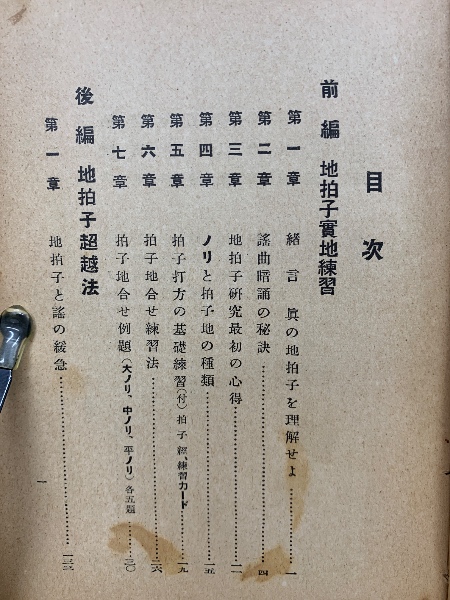 目次
前編 地拍子實地練習
第一章 緒言 眞の地拍子を理解せよ…………一
第二章 謠曲暗誦の秘訣…………四
第三章 地拍子硏究最初の心得…………一一
第四章 ノリと拍子地の種類…………一五
第五章 拍子打方の基礎練習(付)拍子經、練習カード…………一九
第六章 拍子地合せ練習法…………二六
第七章 拍子地合せ例題(大ノリ、中ノリ、平ノリ)各五題…………三〇
後編 地拍子超越法
第一章 地拍子と謠の緩急…………一三三
一